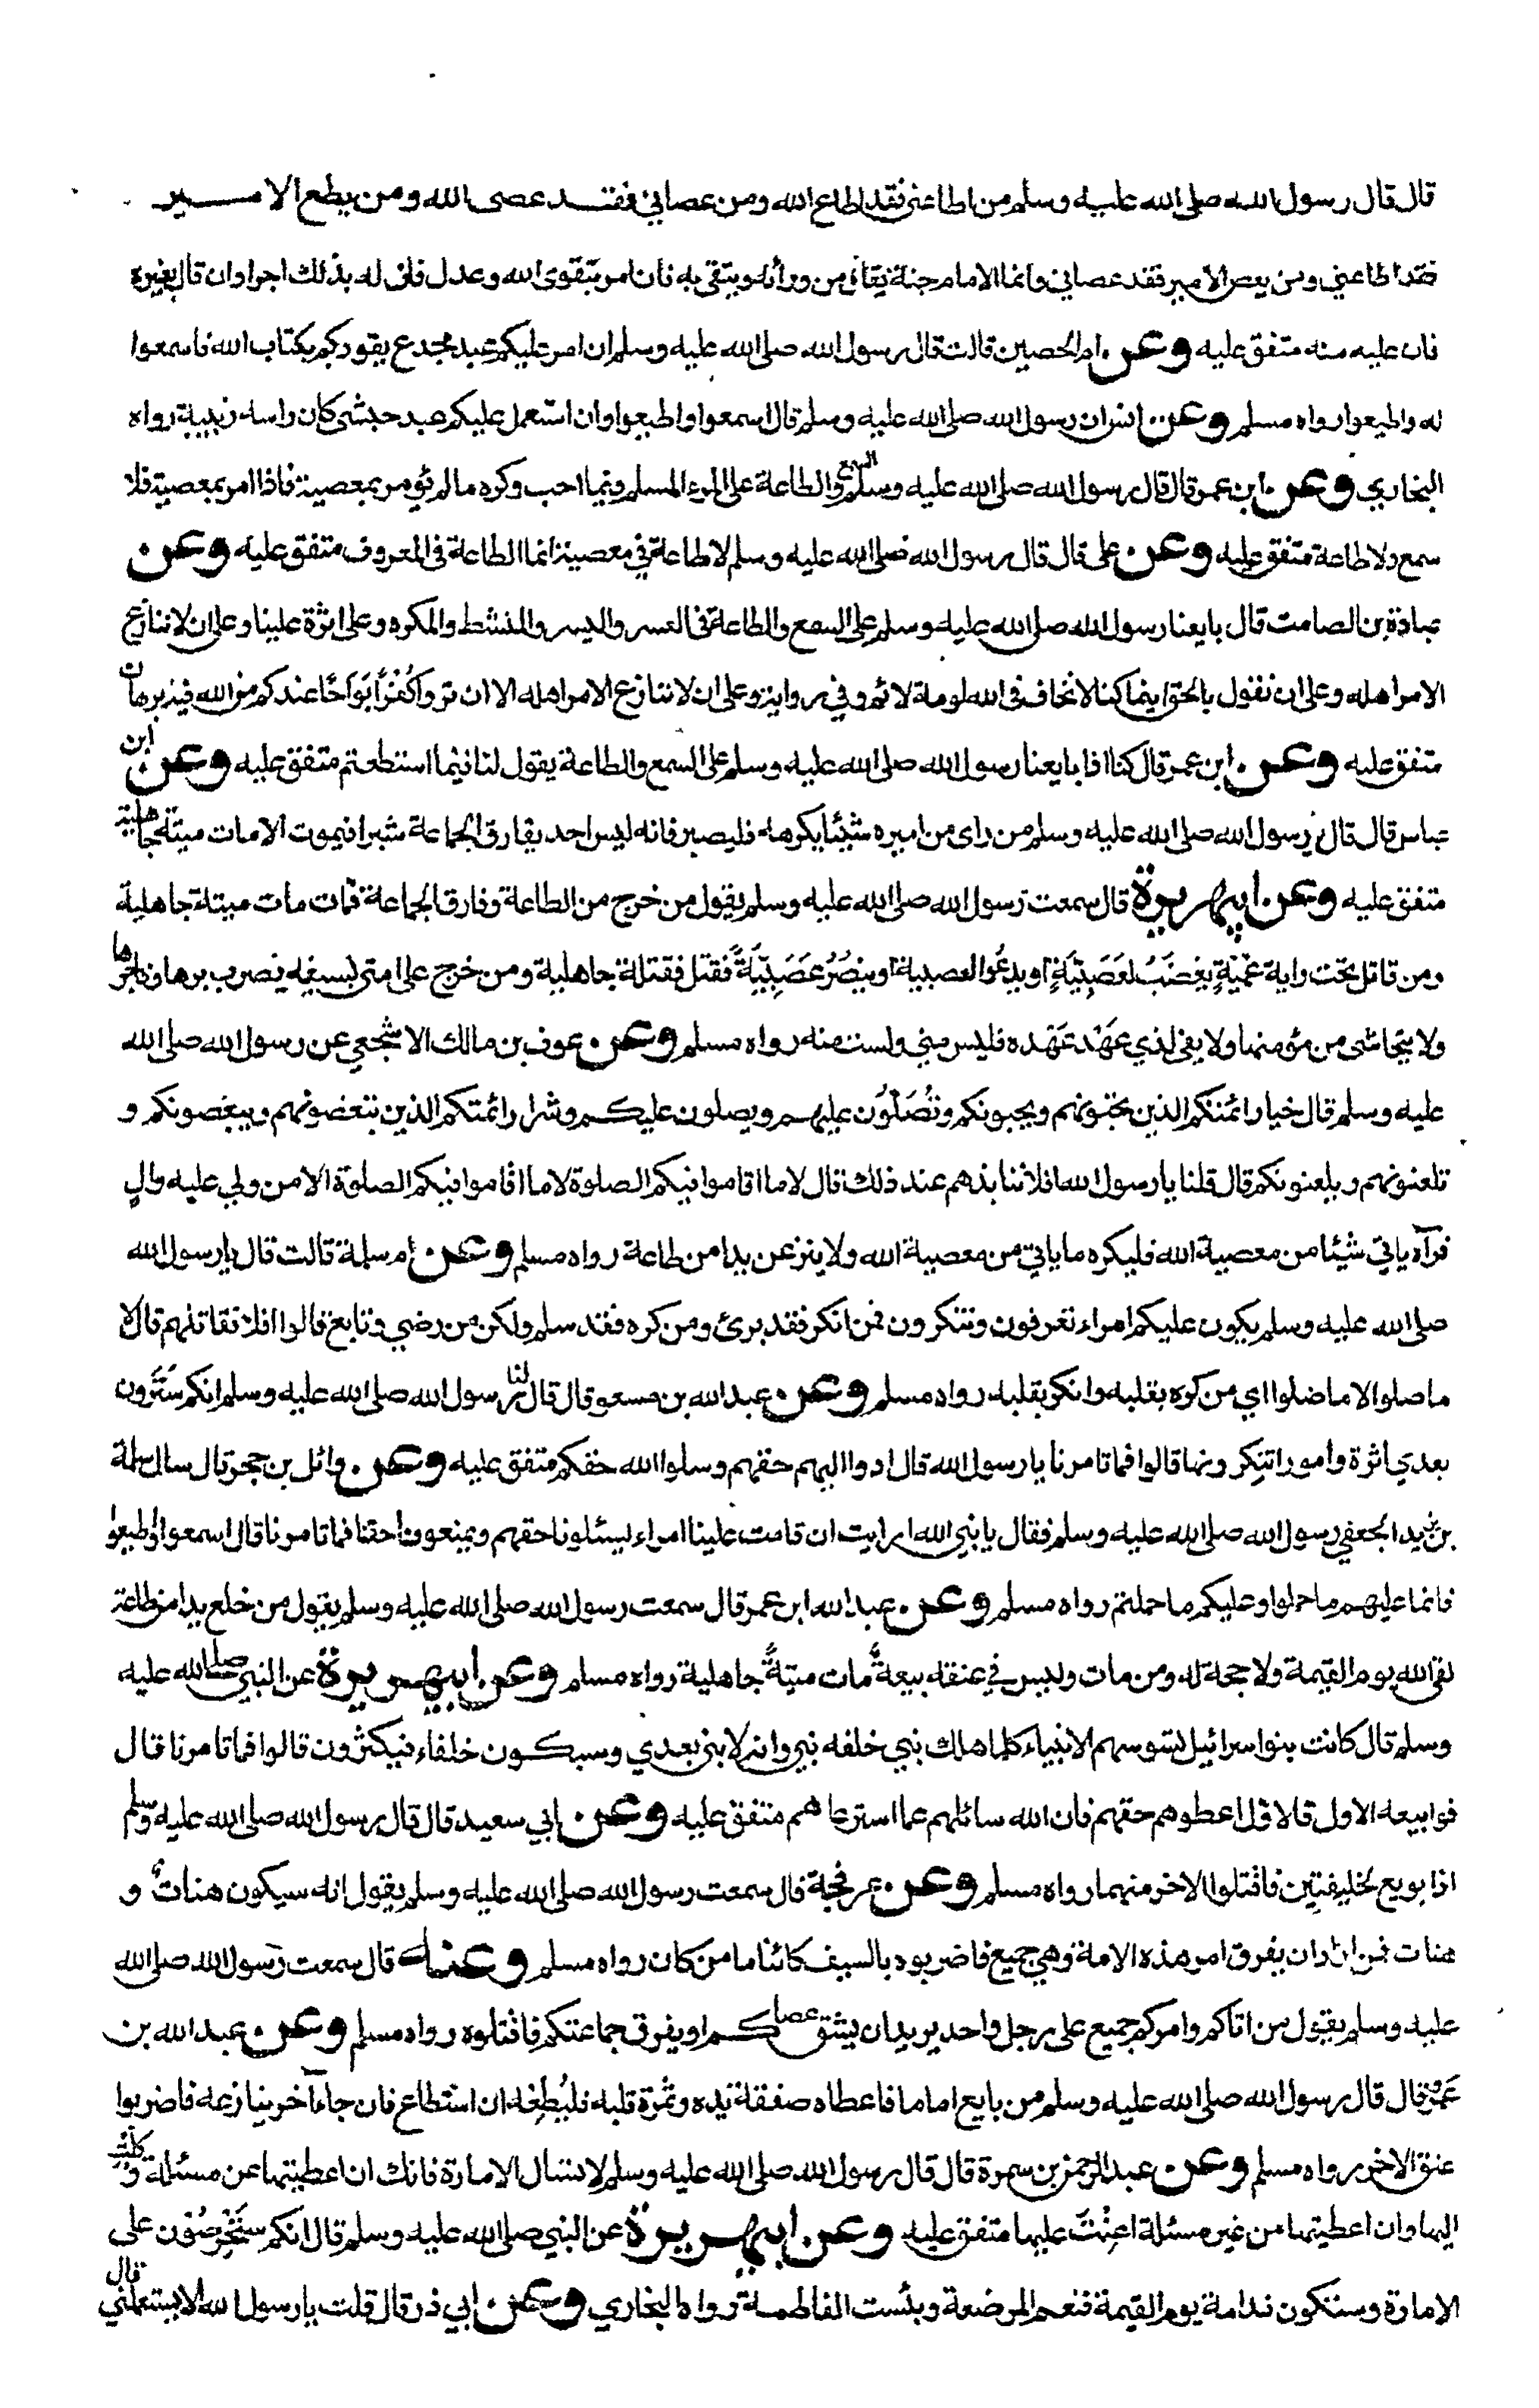 قال قال رسول الله صلى الله عليه وسلم من اطاعني فقد اطاع الله ومن عصاني فقد عصى الله ومن يطع الامير
فقد اطاعني ومن يعص الامير فقد عصاني وانما الامام جنة يقاتل من ورائه ويتقى به فان امر بتقوى الله وعدل فان له بذلك اجرا وان قال بغيره
فان عليه منه متفق عليه وعن ام الحصين قالت قال رسول الله صلى الله عليه وسلم ان امر عليكم عبد مجدع يقودكم بكتاب الله فاسمعوا
له واطيعوا رواه مسلم وعن انس ان رسول الله صلى الله عليه وسلم قال اسمعوا واطيعوا وان استعمل عليكم عبد حبشي كان راسه زبيبة رواه
البخاري وعن ابن عمر قال قال رسول الله صلى الله عليه وسلم السمع والطاعة على المرء المسلم فيما احب وكره ما لم يؤمر بمعصية فاذا امر بمعصية فلا
سمع ولا طاعة متفق عليه وعن علي قال قال رسول الله صلى الله عليه وسلم لا طاعة في معصية انما الطاعة في المعروف متفق عليه وعن
عبادة بن الصامت قال بايعنا رسول الله صلى الله عليه وسلم على السمع والطاعة في العسر واليسر والمنشط والمكره وعلى اثرة علينا وعلى ان لا ننازع
الامر اهله وعلى ان نقول بالحق اينما كنا لا نخاف في الله لومة لائم وفي رواية وعلى ان لا ننازع الامر اهله الا ان تروا كُفْراً بَوَاحًا عندكم من الله فيه برهان
متفق عليه وعن ابن عمر قال كنا اذا بايعنا رسول الله صلى الله عليه وسلم على السمع والطاعة يقول لنا فيما استطعتم متفق عليه وعن ابن
عباس قال قال رسول الله صلى الله عليه وسلم من راى من اميره شيئا يكرهه فليصبر فانه ليس احد يفارق الجماعة شبرا فيموت الا مات ميتة جاهلية
متفق عليه وعن ابيهريرة قال سمعت رسول الله صلى الله عليه وسلم يقول من خرج من الطاعة وفارق الجماعة فمات مات ميتة جاهلية
ومن قاتل تحت راية عمّيةٍ يغضَبُ لعَصَبِيَّةٍ او يدعُو العصبية او ينصُرُ عَصَبِيَّةً فقتل فقتلة جاهلية ومن خرج على امتي بسيفه يضرب برها وفاجرها
ولا يتحاشى من مؤمنها ولا يفي لذي عَهْد عَهْده فليس مني ولست منه رواه مسلم وعن عوف بن مالك الاشجعي عن رسول الله صلى الله
عليه وسلم قال خيار ائمتكم الذين تحبونهم ويحبونكم وتُصَلّون عليهم ويصلون عليكم وشرار ائمتكم الذين تبغضونهم ويبغضونكم و
تلعنونهم ويلعنونكم قال قلنا يا رسول الله افلا ننابذهم عند ذلك قال لا ما اقاموا فيكم الصلوة لا ما اقاموا فيكم الصلوة الا من ولي عليه والٍ
فرآه ياتي شيئا من معصية الله فليكره ما ياتي من معصية الله ولا ينزعن يدا من طاعة رواه مسلم وعن ام سلمة قالت قال يا رسول الله
صلى الله عليه وسلم يكون عليكم امراء تعرفون وتنكرون فمن انكر فقد برئ ومن كره فقد سلم ولكن من رضي وتابع قالوا افلا نقاتلهم قال لا
ما صلوا الا ما ضلوا اي من كره بقلبه وانكر بقلبه رواه مسلم وعن عبد الله بن مسعو قال قال لنا رسول الله صلى الله عليه وسلم انكم سَتَرون
بعدي اثرة وامورا تنكرونها قالوا فما تامرنا يا رسول الله قال ادوا اليهم حقهم وسلوا الله حقكم متفق عليه وعن وائل بن حجر قال سال سلمة
بن يزيد الجعفي رسول الله صلى الله عليه وسلم فقال يا نبي الله ارايت ان قامت علينا امراء يسئلونا حقهم ويمنعونا حقنا فما تامرنا قال اسمعوا واطيعوا
فانما عليهم ما حملوا وعليكم ما حملتم رواه مسلم وعن عبد الله ابن عمر قال سمعت رسول الله صلى الله عليه وسلم يقول من خلع يدا من طاعة
لقى الله يوم القيمة ولا حجة له ومن مات وليس في عنقه بيعةٌ مات ميتةً جاهلية رواه مسلم وعن ابيهريرة عن النبي صلى الله عليه
وسلم قال كانت بنو اسرائيل تسوسهم الانبياء كلما هلك نبي خلفه نبي وانه لا نبي بعدي وسيكون خلفاء فيكثرون قالوا فما تامرنا قال
فوا بيعة الاول فالاول اعطوهم حقهم فان الله سائلهم عما استرعاهم متفق عليه وعن ابي سعيد قال قال رسول الله صلى الله عليه وسلم
اذا بويع لخليفتين فاقتلوا الاخر منهما رواه مسلم وعن عرفجة قال سمعت رسول الله صلى الله عليه وسلم يقول انه سيكون هناتٌ و
هنات فمن اراد ان يفرق امر هذه الامة وهي جميع فاضربوه بالسيف كائنا ما من كان رواه مسلم وعنه قال سمعت رسول الله صلى الله
عليه وسلم يقول من اتاكم وامركم جميع على رجل واحد يريد ان يشق عصاكم او يفرق جماعتكم فاقتلوه رواه مسلم وعن عبد الله بن
عمرو قال قال رسول الله صلى الله عليه وسلم من بايع اماما فاعطاه صفقة يده وثمرة قلبه فليُطِعْه ان استطاع فان جاء آخر ينازعه فاضربوا
عنق الاخر رواه مسلم وعن عبد الرحمن بن سمرة قال قال رسول الله صلى الله عليه وسلم لا تسال الامارة فانك ان اعطيتها عن مسئلة وكلت
اليها وان اعطيتها من غير مسئلة اعِنْتَ عليها متفق عليه وعن ابيهريرة عن النبي صلى الله عليه وسلم قال انكم ستَحْرِصُون على
الامارة وستكون ندامة يوم القيمة فنعم المرضعة وبئست الفاطمة رواه البخاري وعن ابي ذر قال قلت يا رسول الله الا تستعملني قال